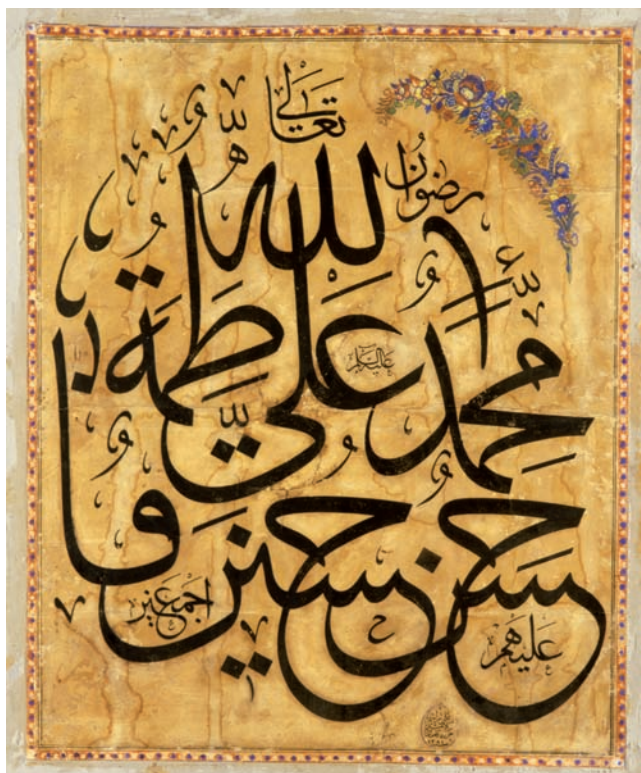 رضوان الله تعالى
محمد علي فاطمة
عليه السلام
حسن حسين
عليهم اجمعين